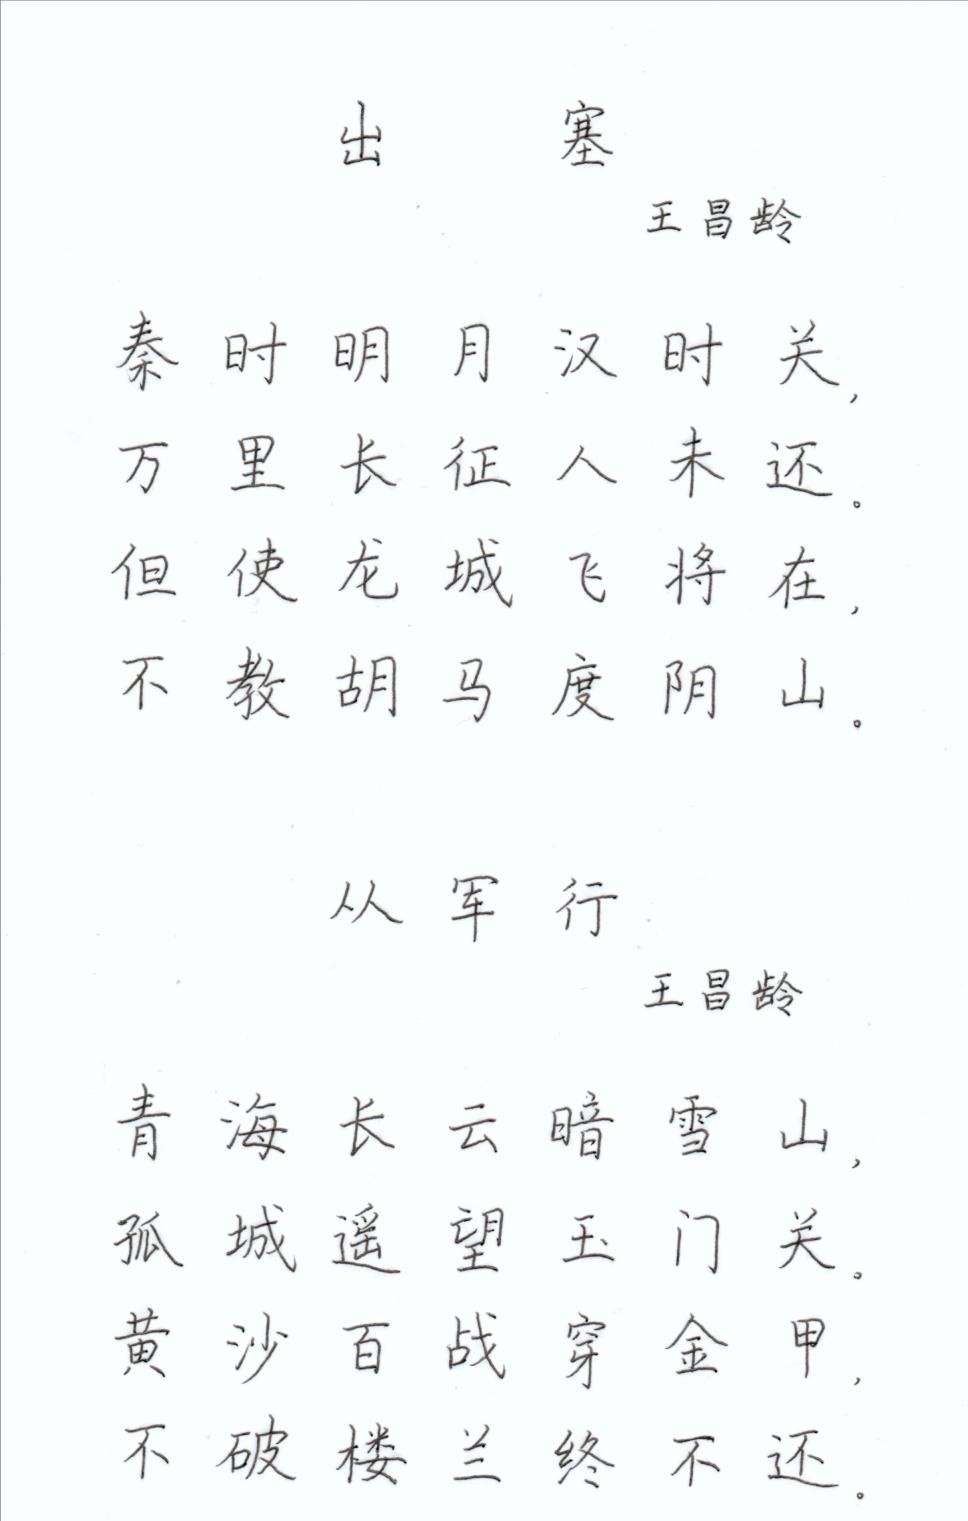 出塞
王昌龄
秦时明月汉时关,
万里长征人未还。
但使龙城飞将在,
不教胡马度阴山。
从军行
王昌龄
青海长云暗雪山,
孤城遥望玉门关。
黄沙百战穿金甲,
不破楼兰终不还。